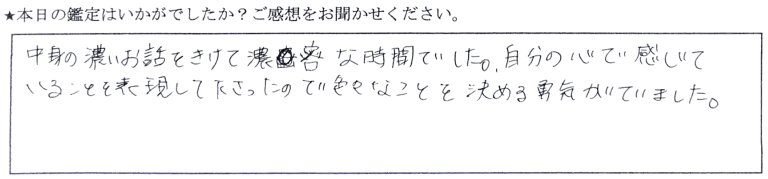 ★本日の鑑定はいかがでしたか？ご感想をお聞かせください。
中身の濃いお話をきけて濃密な時間でした。自分の心で感じて
いることを表現して下さったので色々なことを決める勇気がでました。